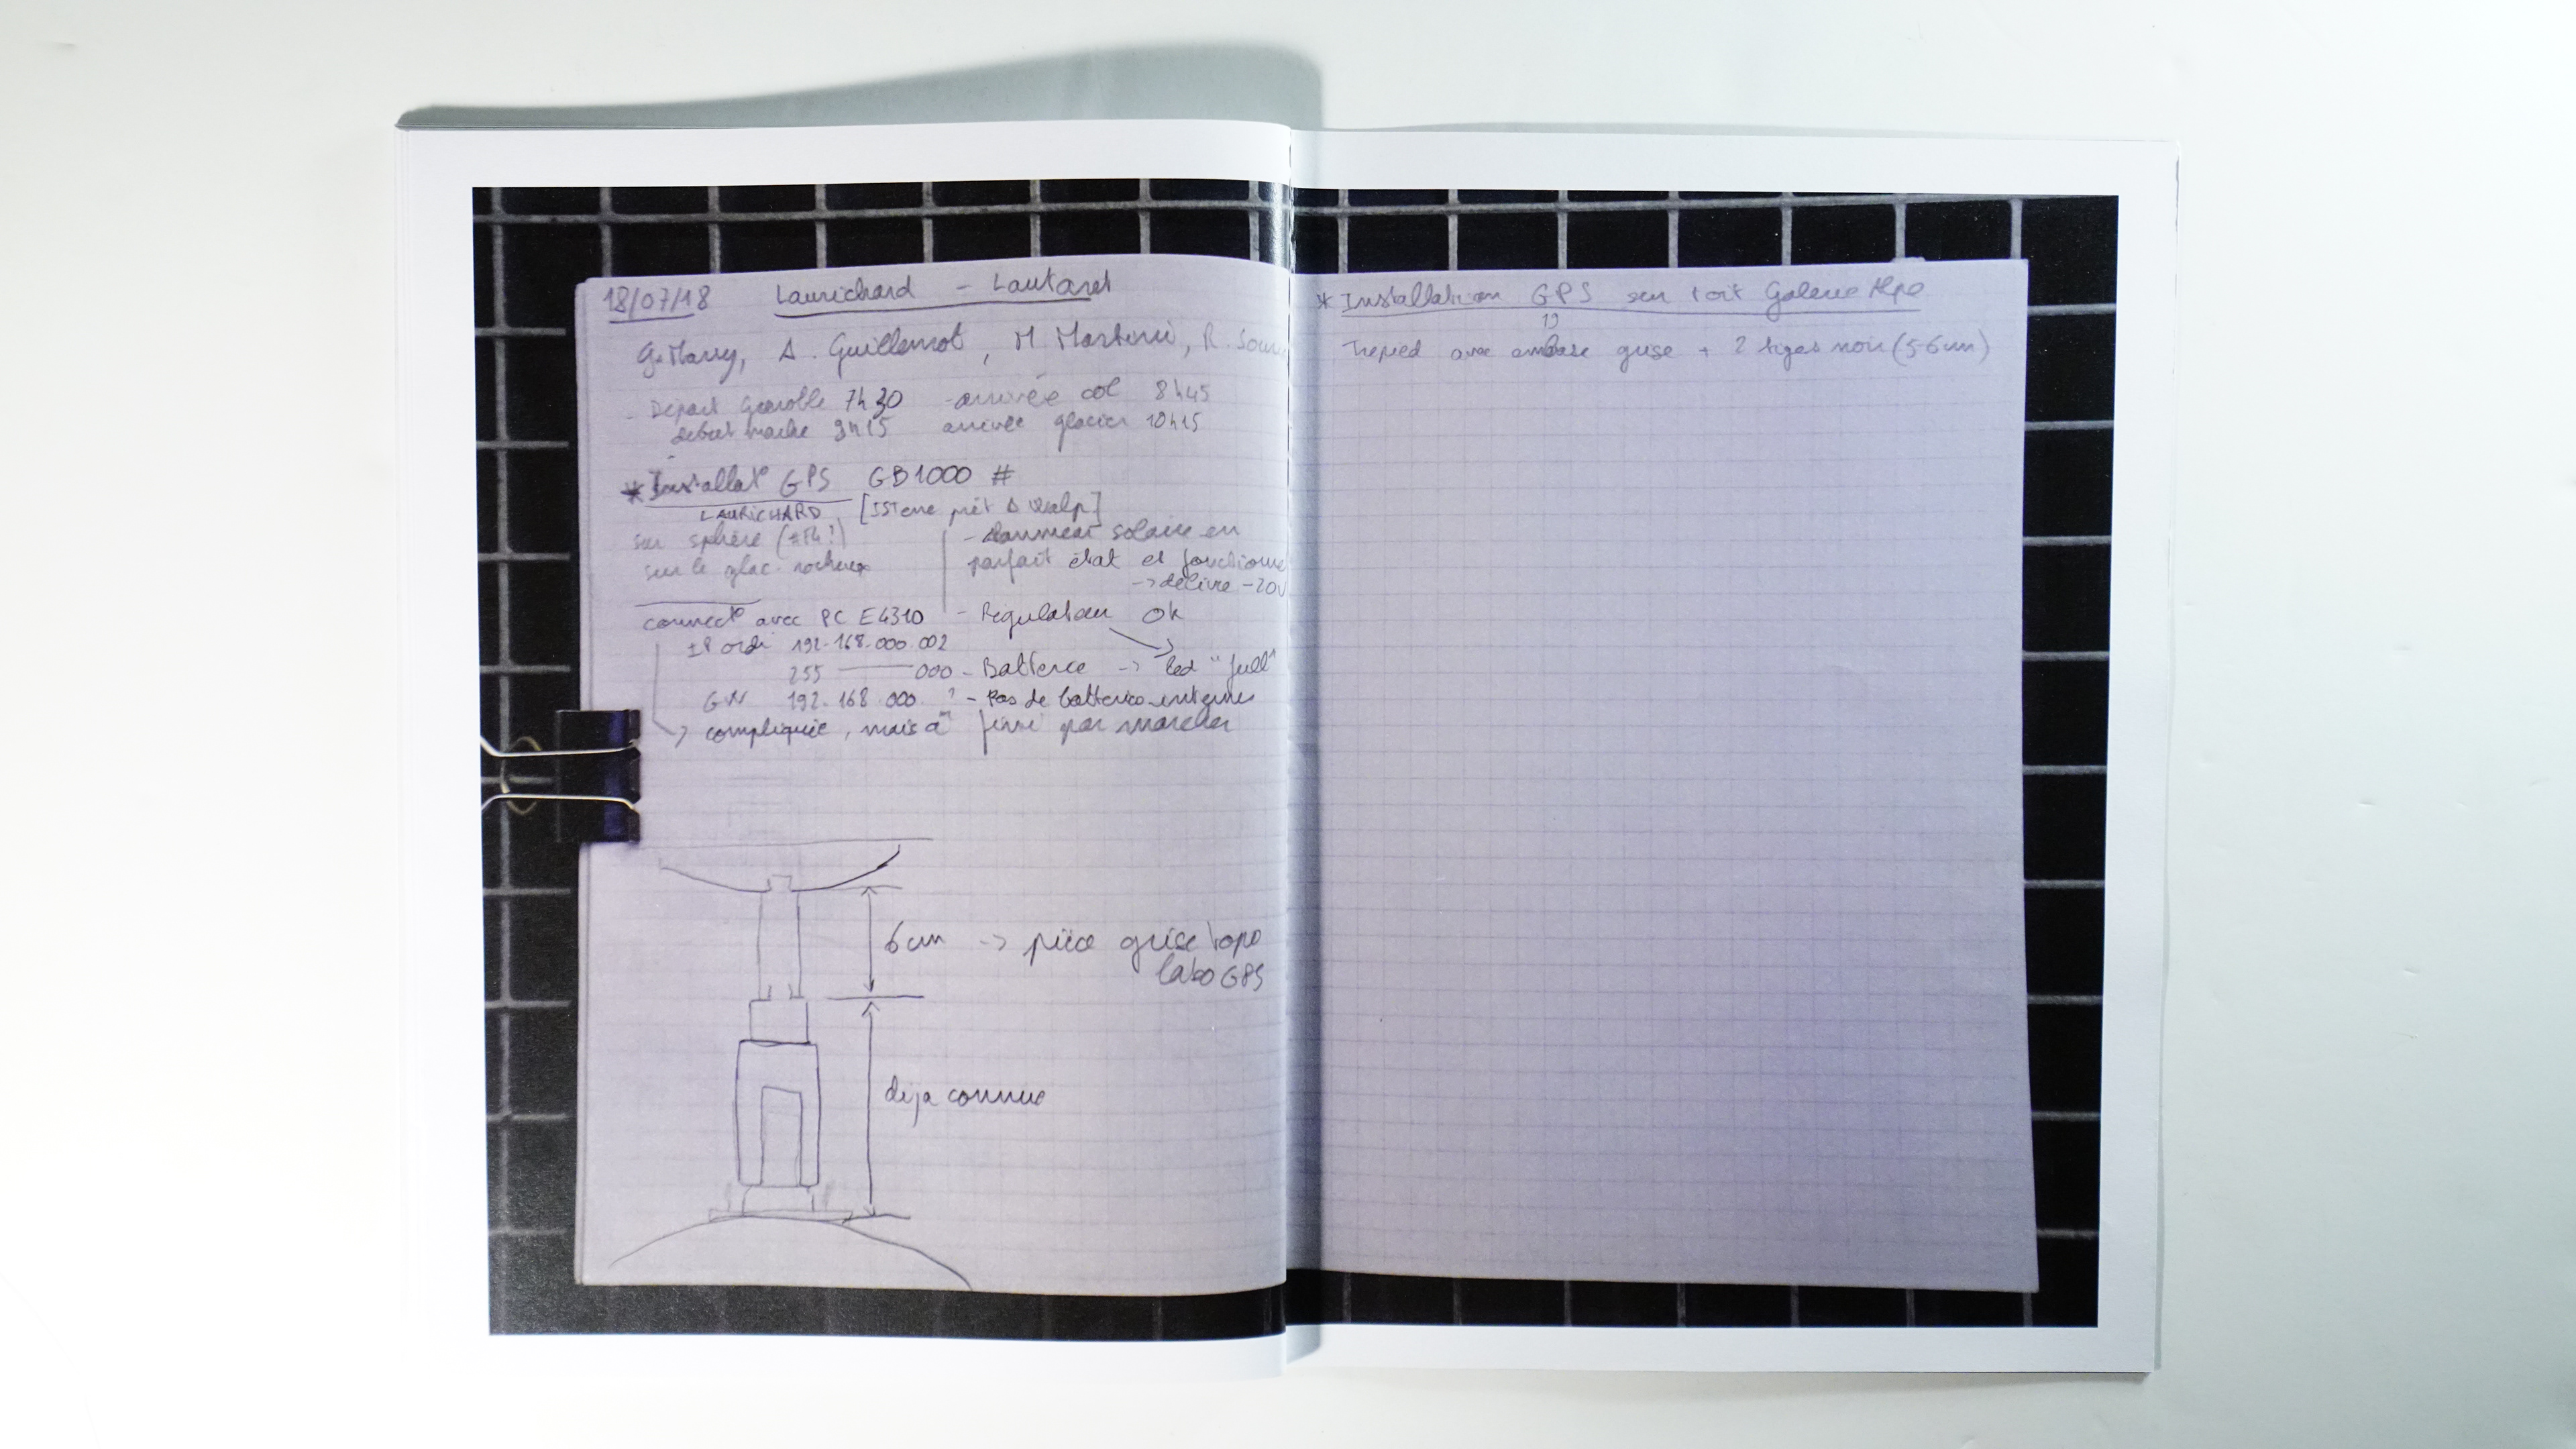 18/07/18 Laurichard - Lautaret
G. Marry, A. Guillemot, M. Martini, R.
- Départ Grenoble 7h30 - arrivée col 8h45
début marche 9h15 arrivée glacier 10h15
* Installat° GPS GB1000 #
LAURICHARD [ISTerre prêt A Walp]
sur sphère
sur le glac. rocheux
- Panneau solaire en
parfait état et fonctionne
-> délivre ~20V
connect° avec PC E4310
IP ordi 192.168.000.002
255 —— 000
GW 192.168.000.
-> compliquée, mais a fini par marcher
- Regulateur OK
- Batterie -> led "full"
- Pas de batteries internes
6cm -> pièce grise topo
labo GPS
déja connue
* Installation GPS sur toit Galerie Alpe
Trepied avec embase grise + 2 tiges noir (5-6cm)